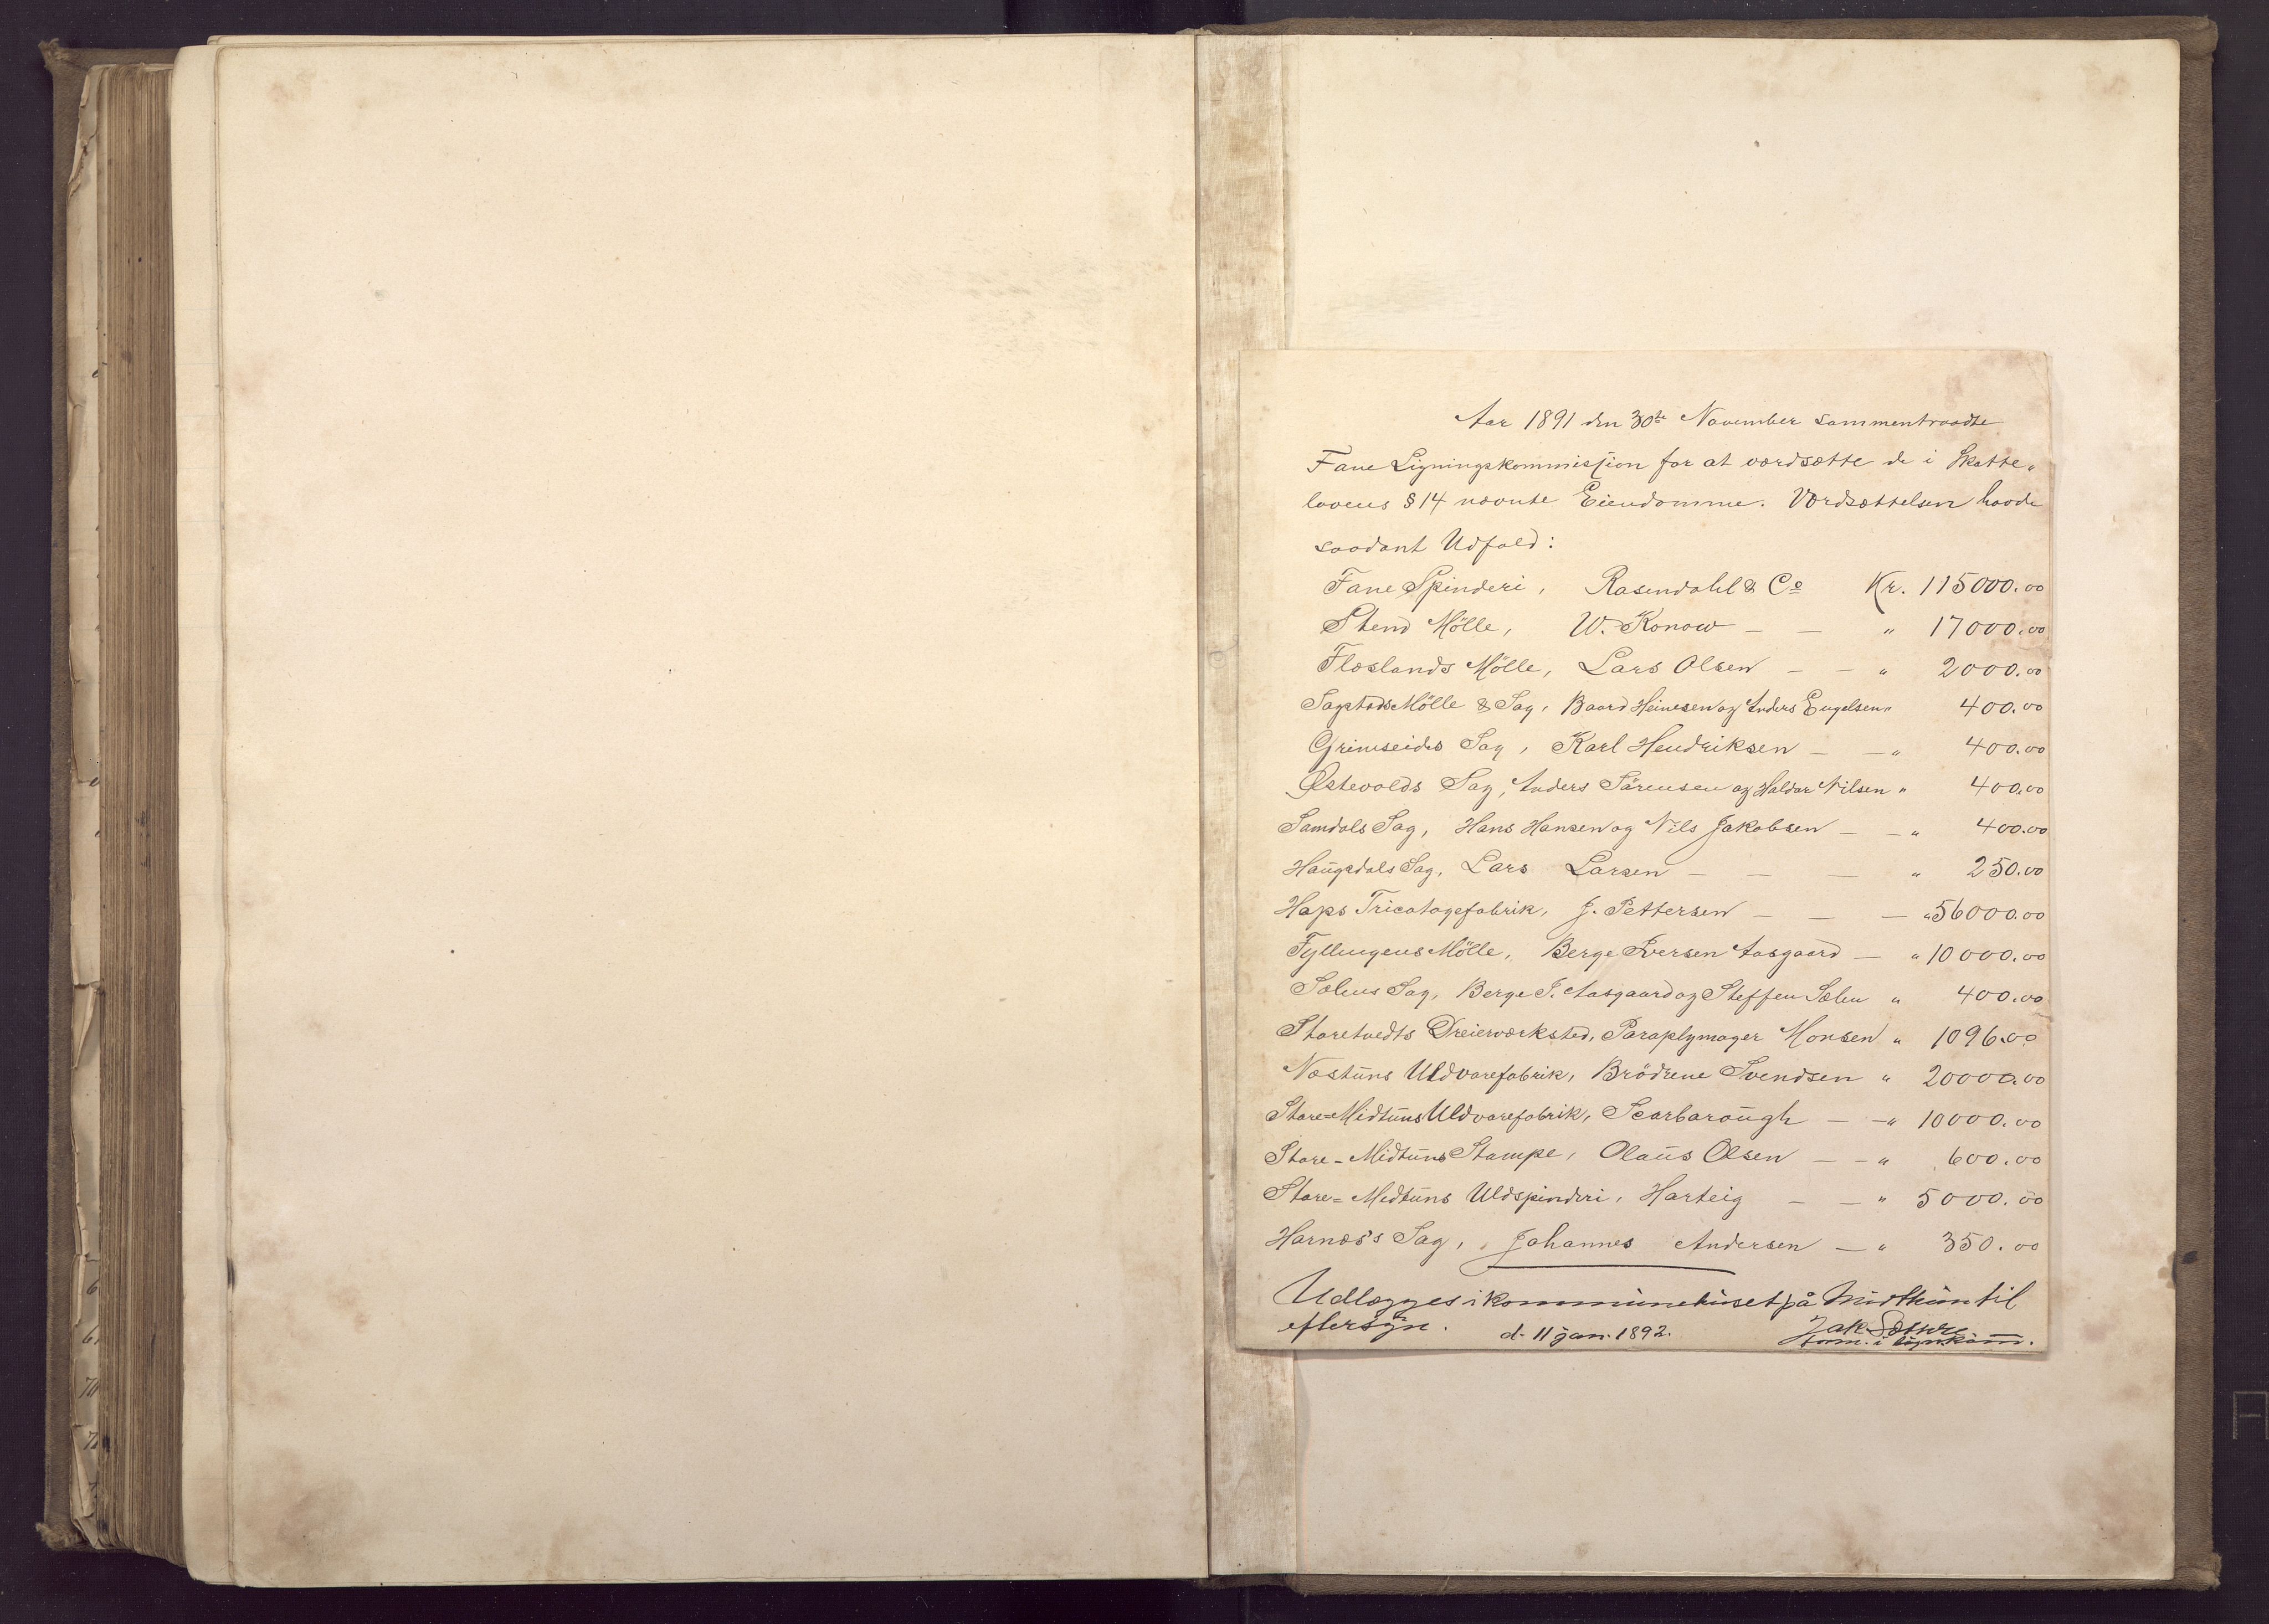 Aar 1891 den 30te November sammentraadte
Fane Ligningskommission for at værdsætte de i Skatte„
lovens § 14 nævnte Eiendomme. Værdsættelsen havde
saadant Udfald:
Fane Spinderi, Rosendahl & Co Kr. 115000.00
Stend Mölle, W. Konow — — " 17000.00
Flæslands Mölle, Lars Olsen — — " 2000.00
Sagstads Mölle & Sag, Baard Heinesen og Anders Engelsen " 400.00
Grimseides Sag, Karl Hendriksen — — " 400.00
Østevolds Sag, Anders Sörensen og Haldor Nilsen " 400.00
Samdals Sag, Hans Hansen og Nils Jakobsen — — " 400.00
Haugsdals Sag, Lars Larsen — — — " 250.00
Hops Tricotagefabrik, J. Pettersen — — — " 56000.00
Fyllingens Mölle, Berge Iversen Aasgaard — " 10000.00
Sælens Sag, Berge I. Aasgaard og Steffen Sælen " 400.00
Storetvedts Dreierværksted, Paraplymager Monsen " 1096.00
Nøstuns Uldvarefabrik, Brödrene Svendsen " 20000.00
Store=Midtuns Uldvarefabrik, Scorborough — — " 10000.00
Store-Midtuns Stampe, Olaus Olsen — — " 600.00
Store=Midtuns Uldspinderi, Harteig — — " 5000.00
Hornæs's Sag, Johannes Andersen — " 350.00
Udlægges i kommunehuset på Midthun til
eftersyn. d. 11 jan. 1892. Jak.
form. i lign.kom.